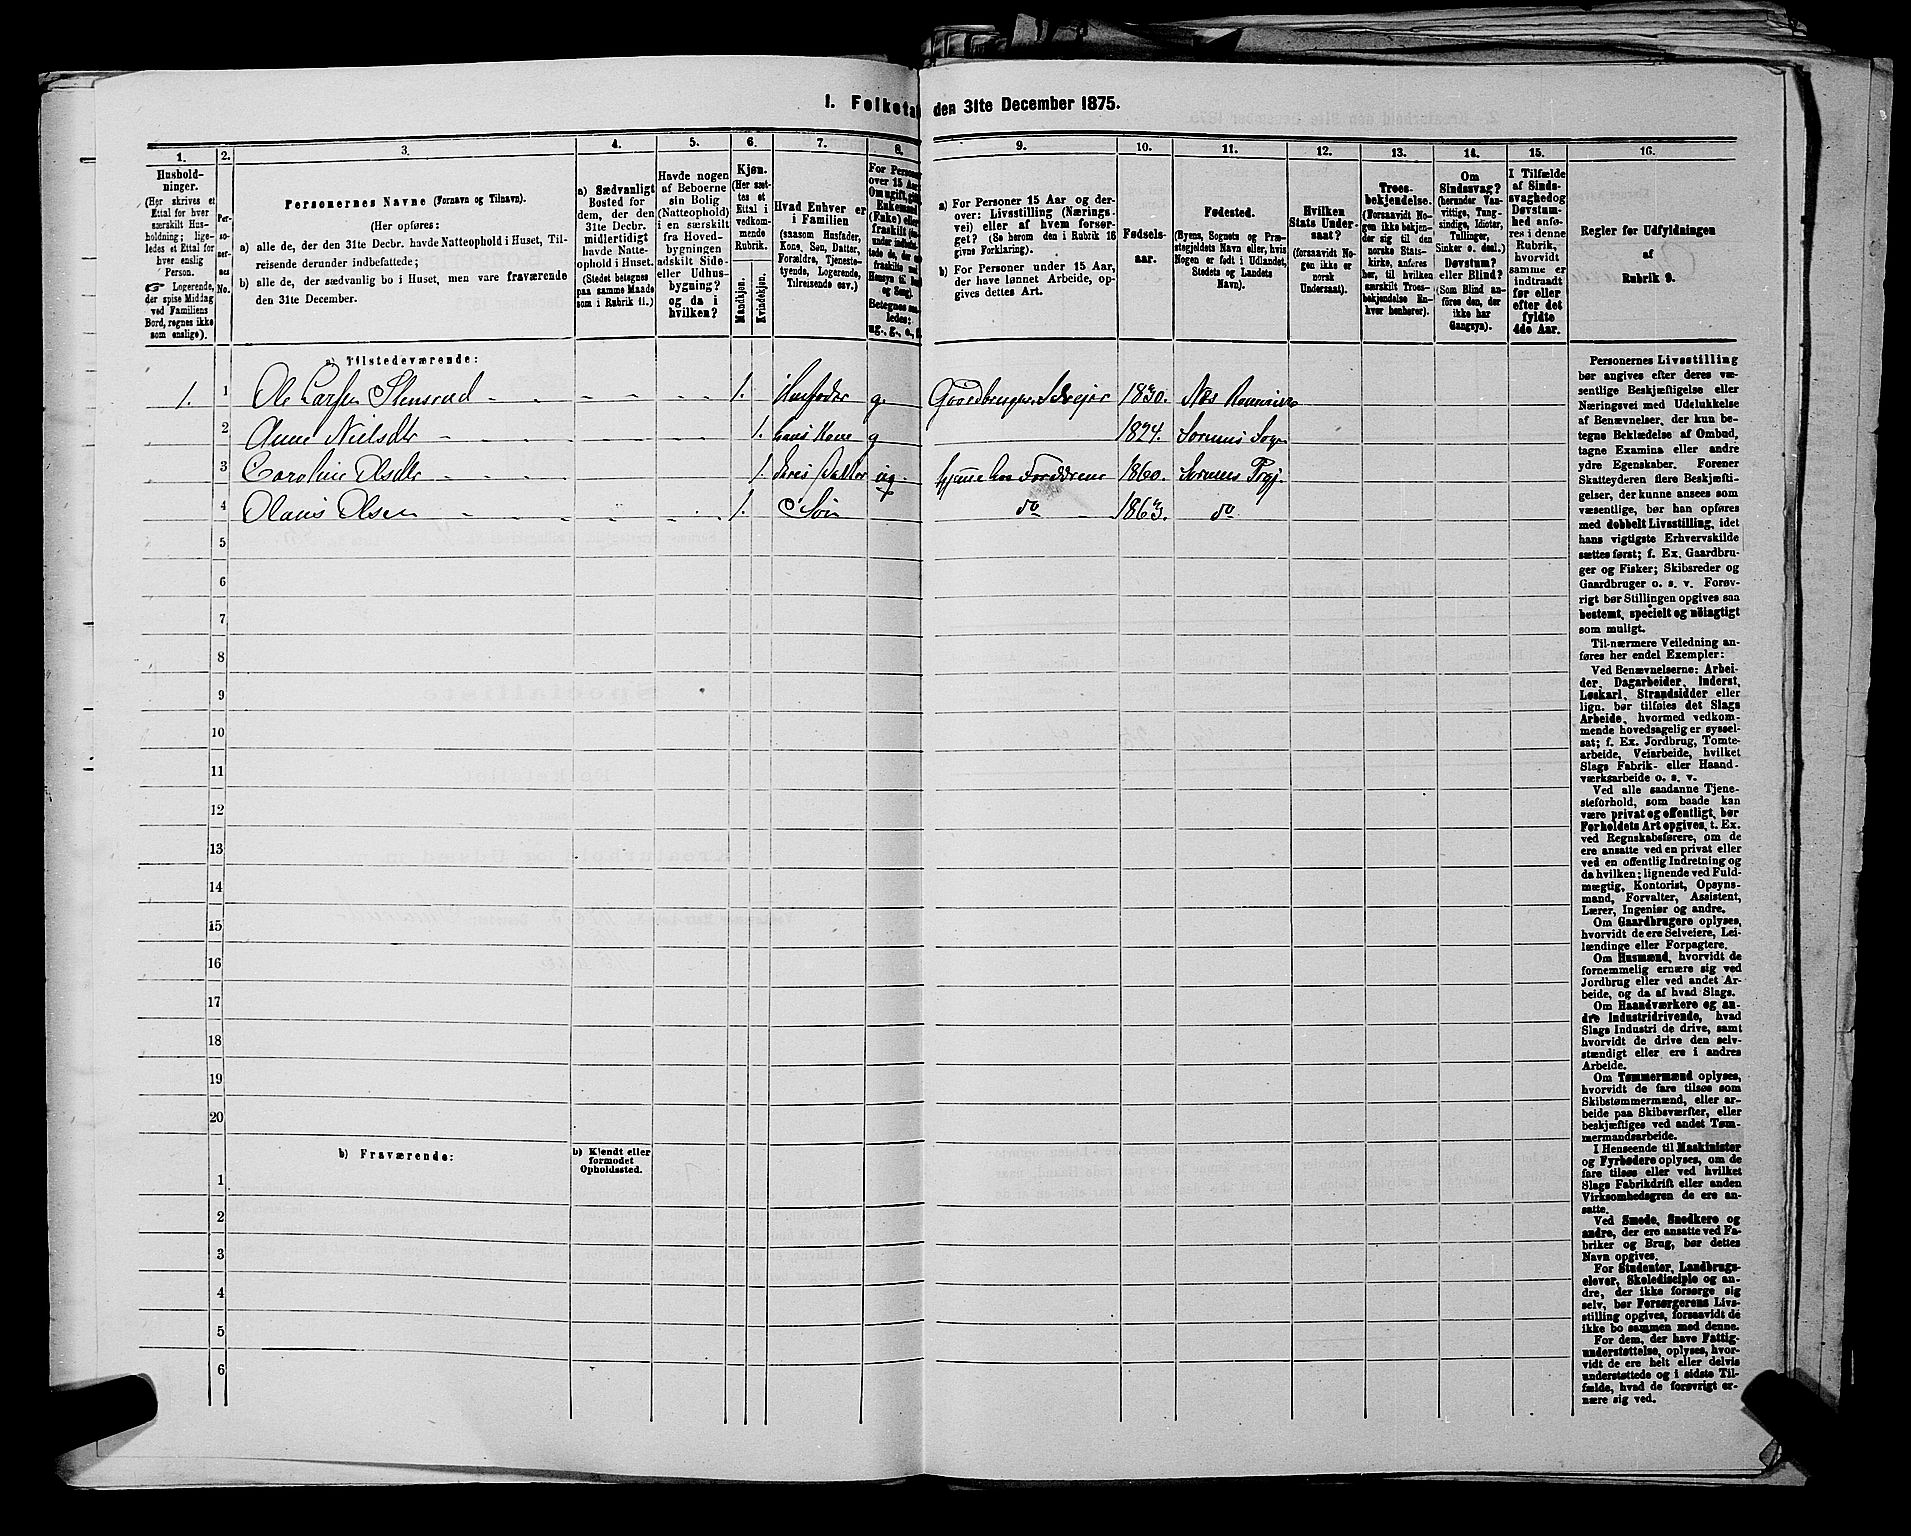 1. Folketal den 31te December 1875.
1. 2. 3. 4. 5. 6. 7. 8. 9. 10. 11. 12. 13. 14. 15. 16.
Hushold-
ninger.
(Her skrives et
Ettal for hver
særskilt Hus-
holdning; lige-
ledes et Ettal for
hver enslig
Person.
☞ Logerende,
der spise Middag
ved Familiens
Bord, regnes ikke
som enslige).
Per-
so-
ner-
nes
No.
Personernes Navne (Fornavn og Tilnavn).
(Her opføres:
a) alle de, der den 31te Decbr. havde Natteophold i Huset, Til-
reisende derunder indbefattede;
b) alle de, der sædvanlig bo i Huset, men vare fraværende
den 31te December.
a) Sædvanligt
Bosted for
dem, der den
31te Decbr.
midlertidigt
havde Natte-
ophold i Huset.
(Stedet betegnes
paa samme Maade
som i Rubrik 11.)
Havde nogen
af Beboerne
sin Bolig
(Natteophold)
i en særskilt
fra Hoved-
bygningen
adskilt Side-
eller Udhus-
bygning?
og da i
hvilken?
Kjøn.
(Her sæt-
tes et
Ettal i
vedkom-
mende
Rubrik.
Mandkjøn.
Kvindekjøn.
Hvad Enhver er
i Familien
(saasom Husfader,
Kone, Søn, Datter,
Forældre, Tjeneste-
tyende, Logerende,
Tilreisende osv.)
For Personer
over 15 Aar:
a) For Personer 15 Aar og der-
over: Livsstilling (Nærings-
vei) eller af hvem forsør-
get? (Se herom den i Rubrik 16
givne Forklaring).
b) For Personer under 15 Aar,
der have lønnet Arbeide, op-
gives dettes Art.
Fødsels-
aar.
Fødested.
(Byens, Sognets og Præ-
stegjeldets Navn eller, hvis
Nogen er født i Udlandet,
Stedets og Landets
Navn).
Hvilken
Stats Under-
saat?
(forsaavidt No-
gen ikke er
norsk
Undersaat).
Troes-
bekjendelse.
(Forsaavidt No-
gen ikke bekjen-
der sig til den
norske Stats-
kirke, anføres
her, til hvilken
særskilt Troes-
bekjendelse En-
hver henhører).
Om
Sindssvag?
(herunder Van-
vittige, Tung-
sindige, Idioter,
Tullinger,
Sinker o. desl.).
Døvstum?
eller Blind?
(Som Blind an-
føres den, der
ikke har
Gangsyn).
I Tilfælde
af Sinds-
svaghed og
Døvstum-
hed anfø-
res i denne
Rubrik,
hvorvidt
samme er
indtraadt
før eller
efter det
fyldte
4de Aar.
Regler for Udfyldningen
af
Rubrik 9.
a) Tilstedeværende:
1. 1 Ole Larsen Stensrud 1. Husfader g. Gaardbruger Selveier 1830. Næs Romerike
2 Anne Nielsdtr 1. hans Kone g 1824. Sørums Sogn
3 Caroline Olsdtr 1. deres Datter ug. hjemme hos Forældrene 1860. Sørums Prgj.
4 Olaus Olsen 1. Søn do 1863. do
5
6
7
8
9
10
11
12
13
14
15
16
17
18
19
20
b) Fraværende:
b) Kjendt eller
formodet
Opholdssted.
1
2
3
4
5
6
Personernes Livsstilling
bør angives efter deres væ-
sentlige Beskjæftigelse eller
Næringsvei med Udelukkelse
af Benævnelser, der kun be-
tegne Beklædelse af Ombud,
tagne Examina eller andre
ydre Egenskaber. Forener
Skatteyderen flere Beskjæfti-
gelser, der kunne ansees som
væsentlige, bør han opføres
med dobbelt Livsstilling, idet
hans vigtigste Erhvervskilde
sættes først; f. Ex. Gaardbru-
ger og Fisker; Skibsreder og
Gaardbruger o. s. v. Forøv-
rigt bør Stillingen opgives saa
bestemt, specielt og nøiagtigt
som muligt.
Til nærmere Veiledning an-
føres her endel Exempler:
Ved Benævnelserne: Arbei-
der, Dagarbeider, Inderst,
Løskarl, Strandsidder eller
lign. bør tilføies det Slags
Arbeide, hvormed vedkom-
mende hovedsagelig er syssel-
sat; f. Ex. Jordbrug, Tomte-
arbeide, Veiarbeide, hvilket
Slags Fabrik- eller Haand-
værksarbeide o. s. v.
Ved alle saadanne Tjene-
steforhold, som baade kan
være privat og offentligt, bør
Forholdets Art opgives, t. Ex.
ved Regnskabsførere, om de
ere ansatte ved en privat eller
ved en offentlig Indretning og
da hvilken; lignende ved Fuld-
mægtig, Kontorist, Opsyns-
mand, Forvalter, Assistent,
Lærer, Ingeniør og andre.
Om Gaardbrugere oplyses,
hvorvidt de ere Selveiere, Lei-
lændinge eller Forpagtere.
Om Husmænd, hvorvidt de
fornemmelig ernære sig ved
Jordbrug eller ved andet Ar-
beide, og da af hvad Slags.
Om Haandværkere og an-
dre Industridrivende, hvad
Slags Industri de drive, samt
hvorvidt de drive den selv-
stændigt eller ere i andres
Arbeide.
Om Tømmermænd oplyses,
hvorvidt de fare tilsøs som
Skibstømmermænd, eller ar-
beide paa Skibsværfter, eller
beskjæftiges ved andet Tøm-
mermandsarbeide.
I Henseende til Maskinister
og Fyrbødere oplyses, om de
fare tilsøs eller ved hvilket
Slags Fabrikdrift eller anden
Virksomhedsgren de ere an-
satte.
Ved Smede, Snedkere og
andre, der ere ansatte ved Fa-
briker og Brug, bør dettes
Navn opgives.
For Studenter, Landbrugs-
elever, Skoledisciple og an-
dre, der ikke forsørge sig
selv, bør Forsørgerens Livs-
stilling opgives, forsaavidt de
ikke bo sammen med denne.
For dem, der have Fattig-
understøttelse, oplyses, hvor-
vidt de ere helt eller delvis
understøttede og i sidste Til-
fælde, hvad de forøvrigt er-
nære sig ved.